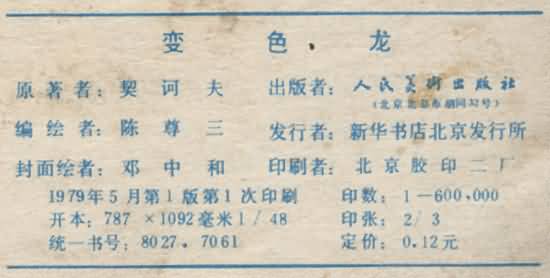 变色龙
原著者：契诃夫 出版者：人民美术出版社
（北京北总布胡同32号）
编绘者：陈尊三 发行者：新华书店北京发行所
封面绘者：邓中和 印刷者：北京胶印二厂
1979年5月第1版第1次印刷 印数：1—600,000
开本：787×1092毫米1/48 印张：2/3
统一书号：8027。7061 定价：0.12元